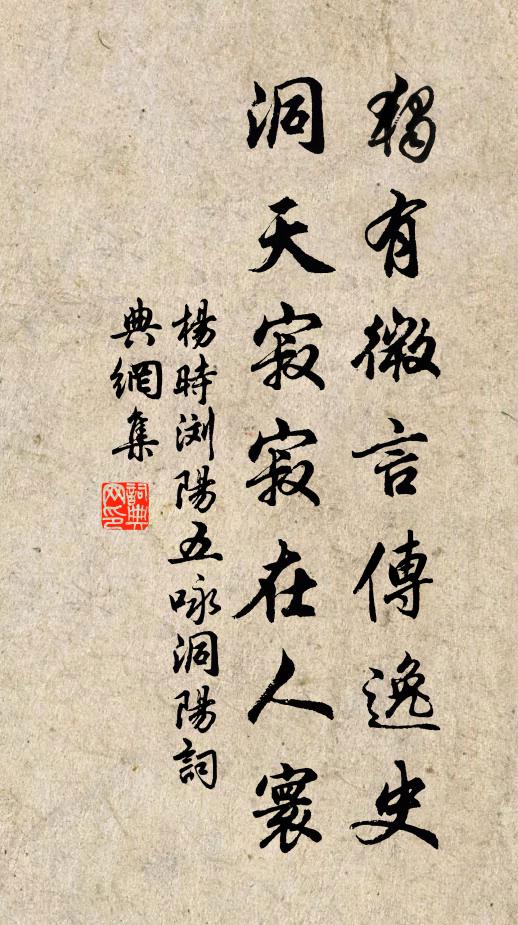 獨有微言傳逸史
洞天寂寂在人寰
楊時浏陽五咏洞陽詞
典網集
詞典
网印